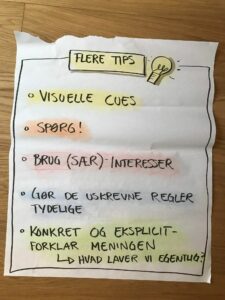 FLERE TIPS
VISUELLE CUES
SPØRG!
BRUG (SÆR)-INTERESSER
GØR DE USKREVNE REGLER
TYDELIGE
KONKRET OG EKSPLICIT-
FORKLAR MENINGEN
↳ HVAD LAVER VI EGENTLIG?